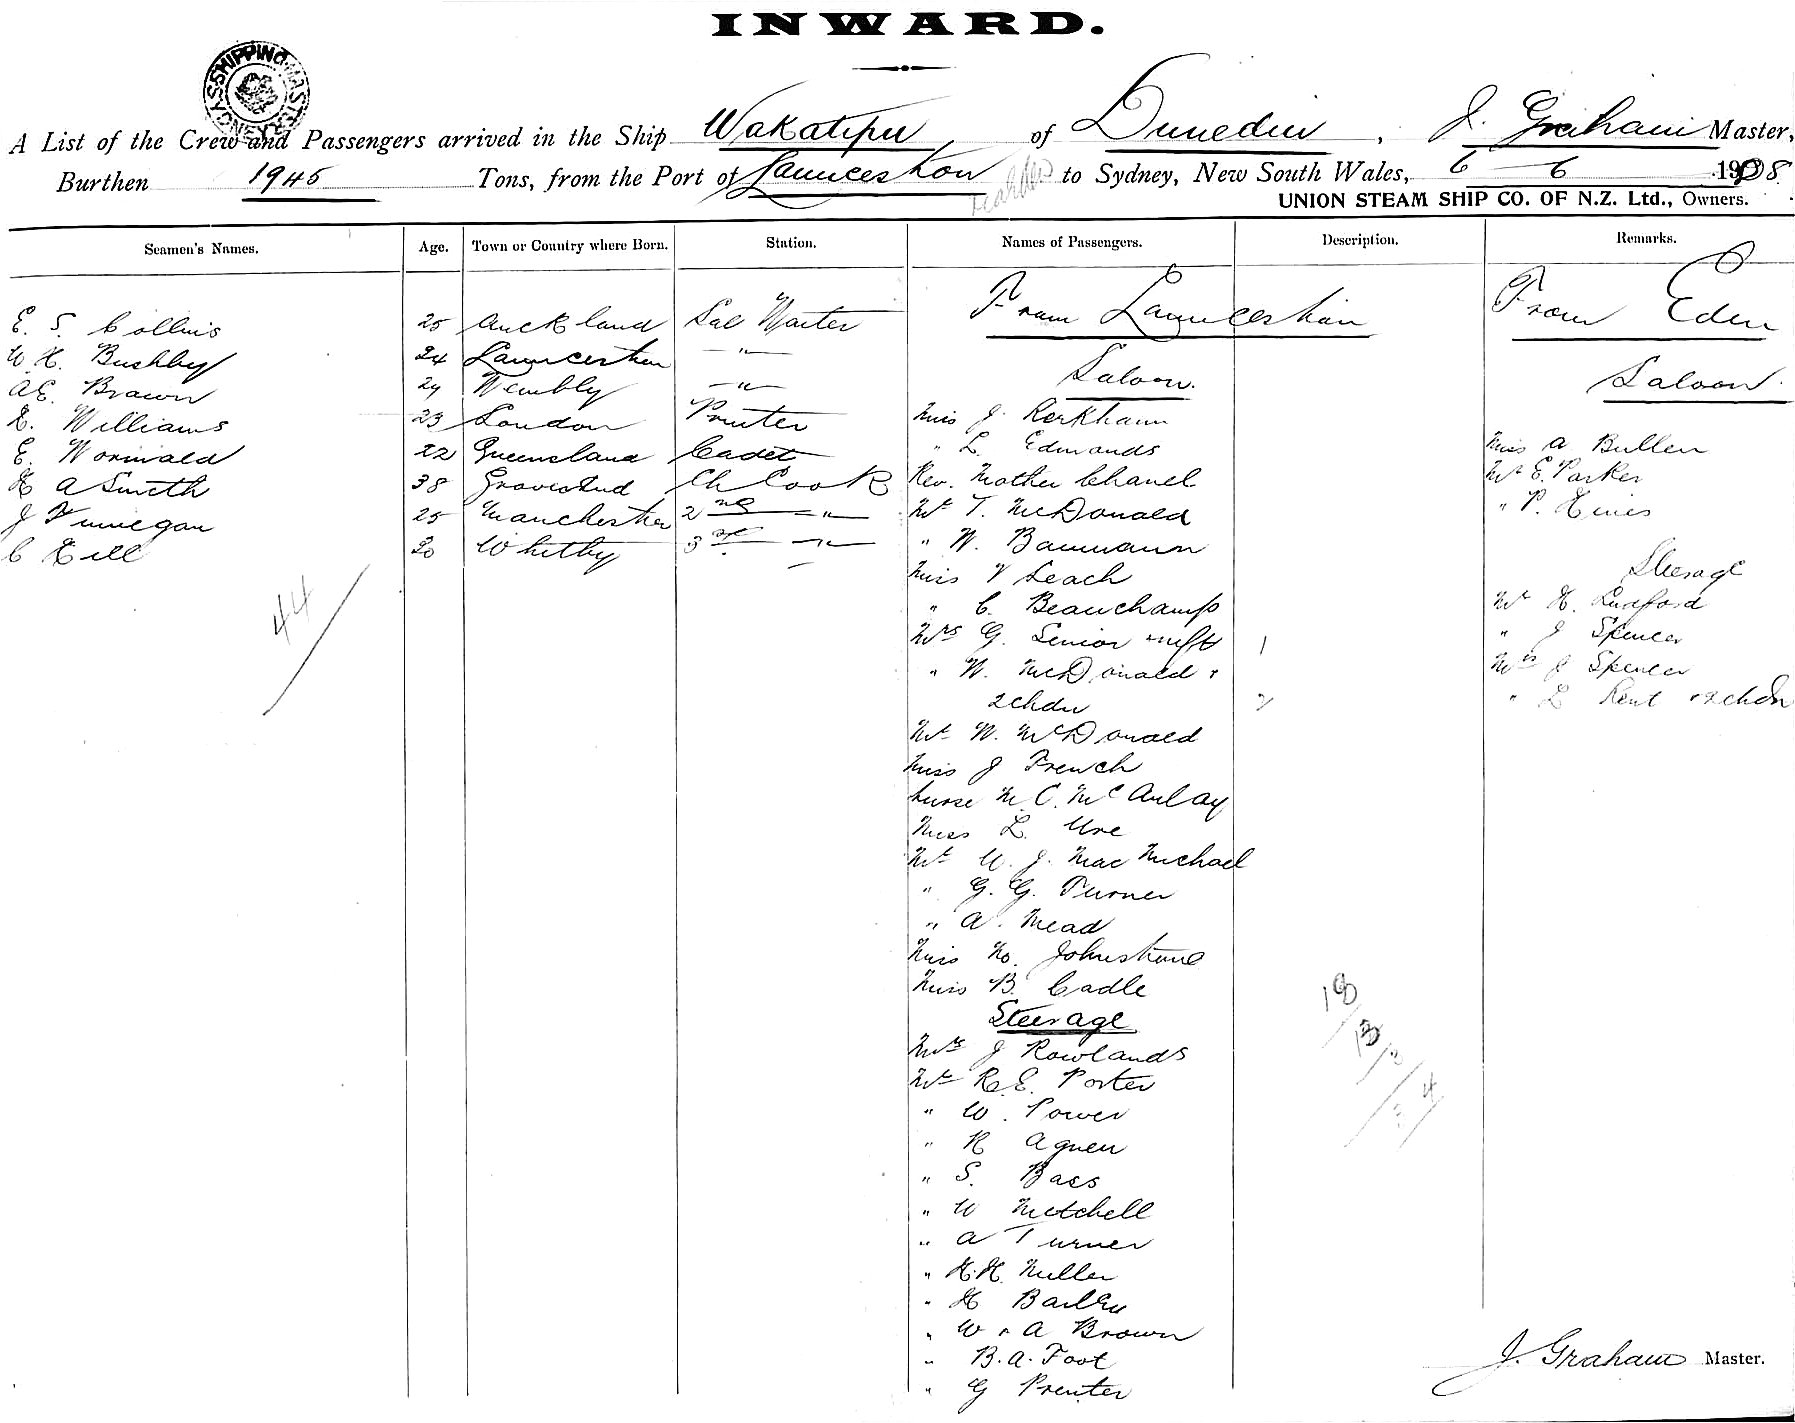 INWARD.
SHIPPING MASTER SYDNEY
A List of the Crew and Passengers arrived in the Ship Wakatipu of Dunedin, J. Graham Master,
Burthen 1945 Tons, from the Port of Launceston to Sydney, New South Wales, 6 - 6 1908.
UNION STEAM SHIP CO. OF N.Z. Ltd., Owners.
Seamen's Names. Age. Town or Country where Born. Station. Names of Passengers. Description. Remarks.
E. S. Collins 25 Auckland Sal Waiter
W. H. Bushby 24 Launceston — " —
A E. Brown 24 Wembly — " —
H. Williams 23 London Printer
E. Worwald 22 Queensland Cadet
H A Smith 38 Gravesend Ch Cook
J Finnegan 25 Manchester 2nd — " —
C Hill 20 Whitby 3rd — " —
44
From Launceston
Saloon.
Miss J. Kerkham
" L. Edmonds
Rev. Mother Chanel
Mr T. McDonald
" W. Baumann
Miss V Leach
" C. Beauchamp
Mrs G. Senior & inft 1
" W. McDonald &
2 chdn 2
Mr W. McDonald
Miss J French
Nurse M. C. McAulay
Miss L. Ure
Mr W. J. MacMichael
" G. G. Turner
" A. Mead
Miss No. Johnstone
Miss B. Cadle
Steerage
Mrs J Rowlands
Mr R. E. Porter
" W. Power
" R Agnew
" S. Bass
" W Mitchell
" A Turner
" H. H. Miller
" H Bailey
" W & A Brown
" B. A. Foot
" G Prenter
18
13
3
34
From Eden
Saloon.
Miss A Bullen
Mr E. Parker
" P. Hines
Steerage
Mr H. Ludford
" J Spencer
Mrs J Spencer
" L Kent & 2 chdn
J. Graham Master.